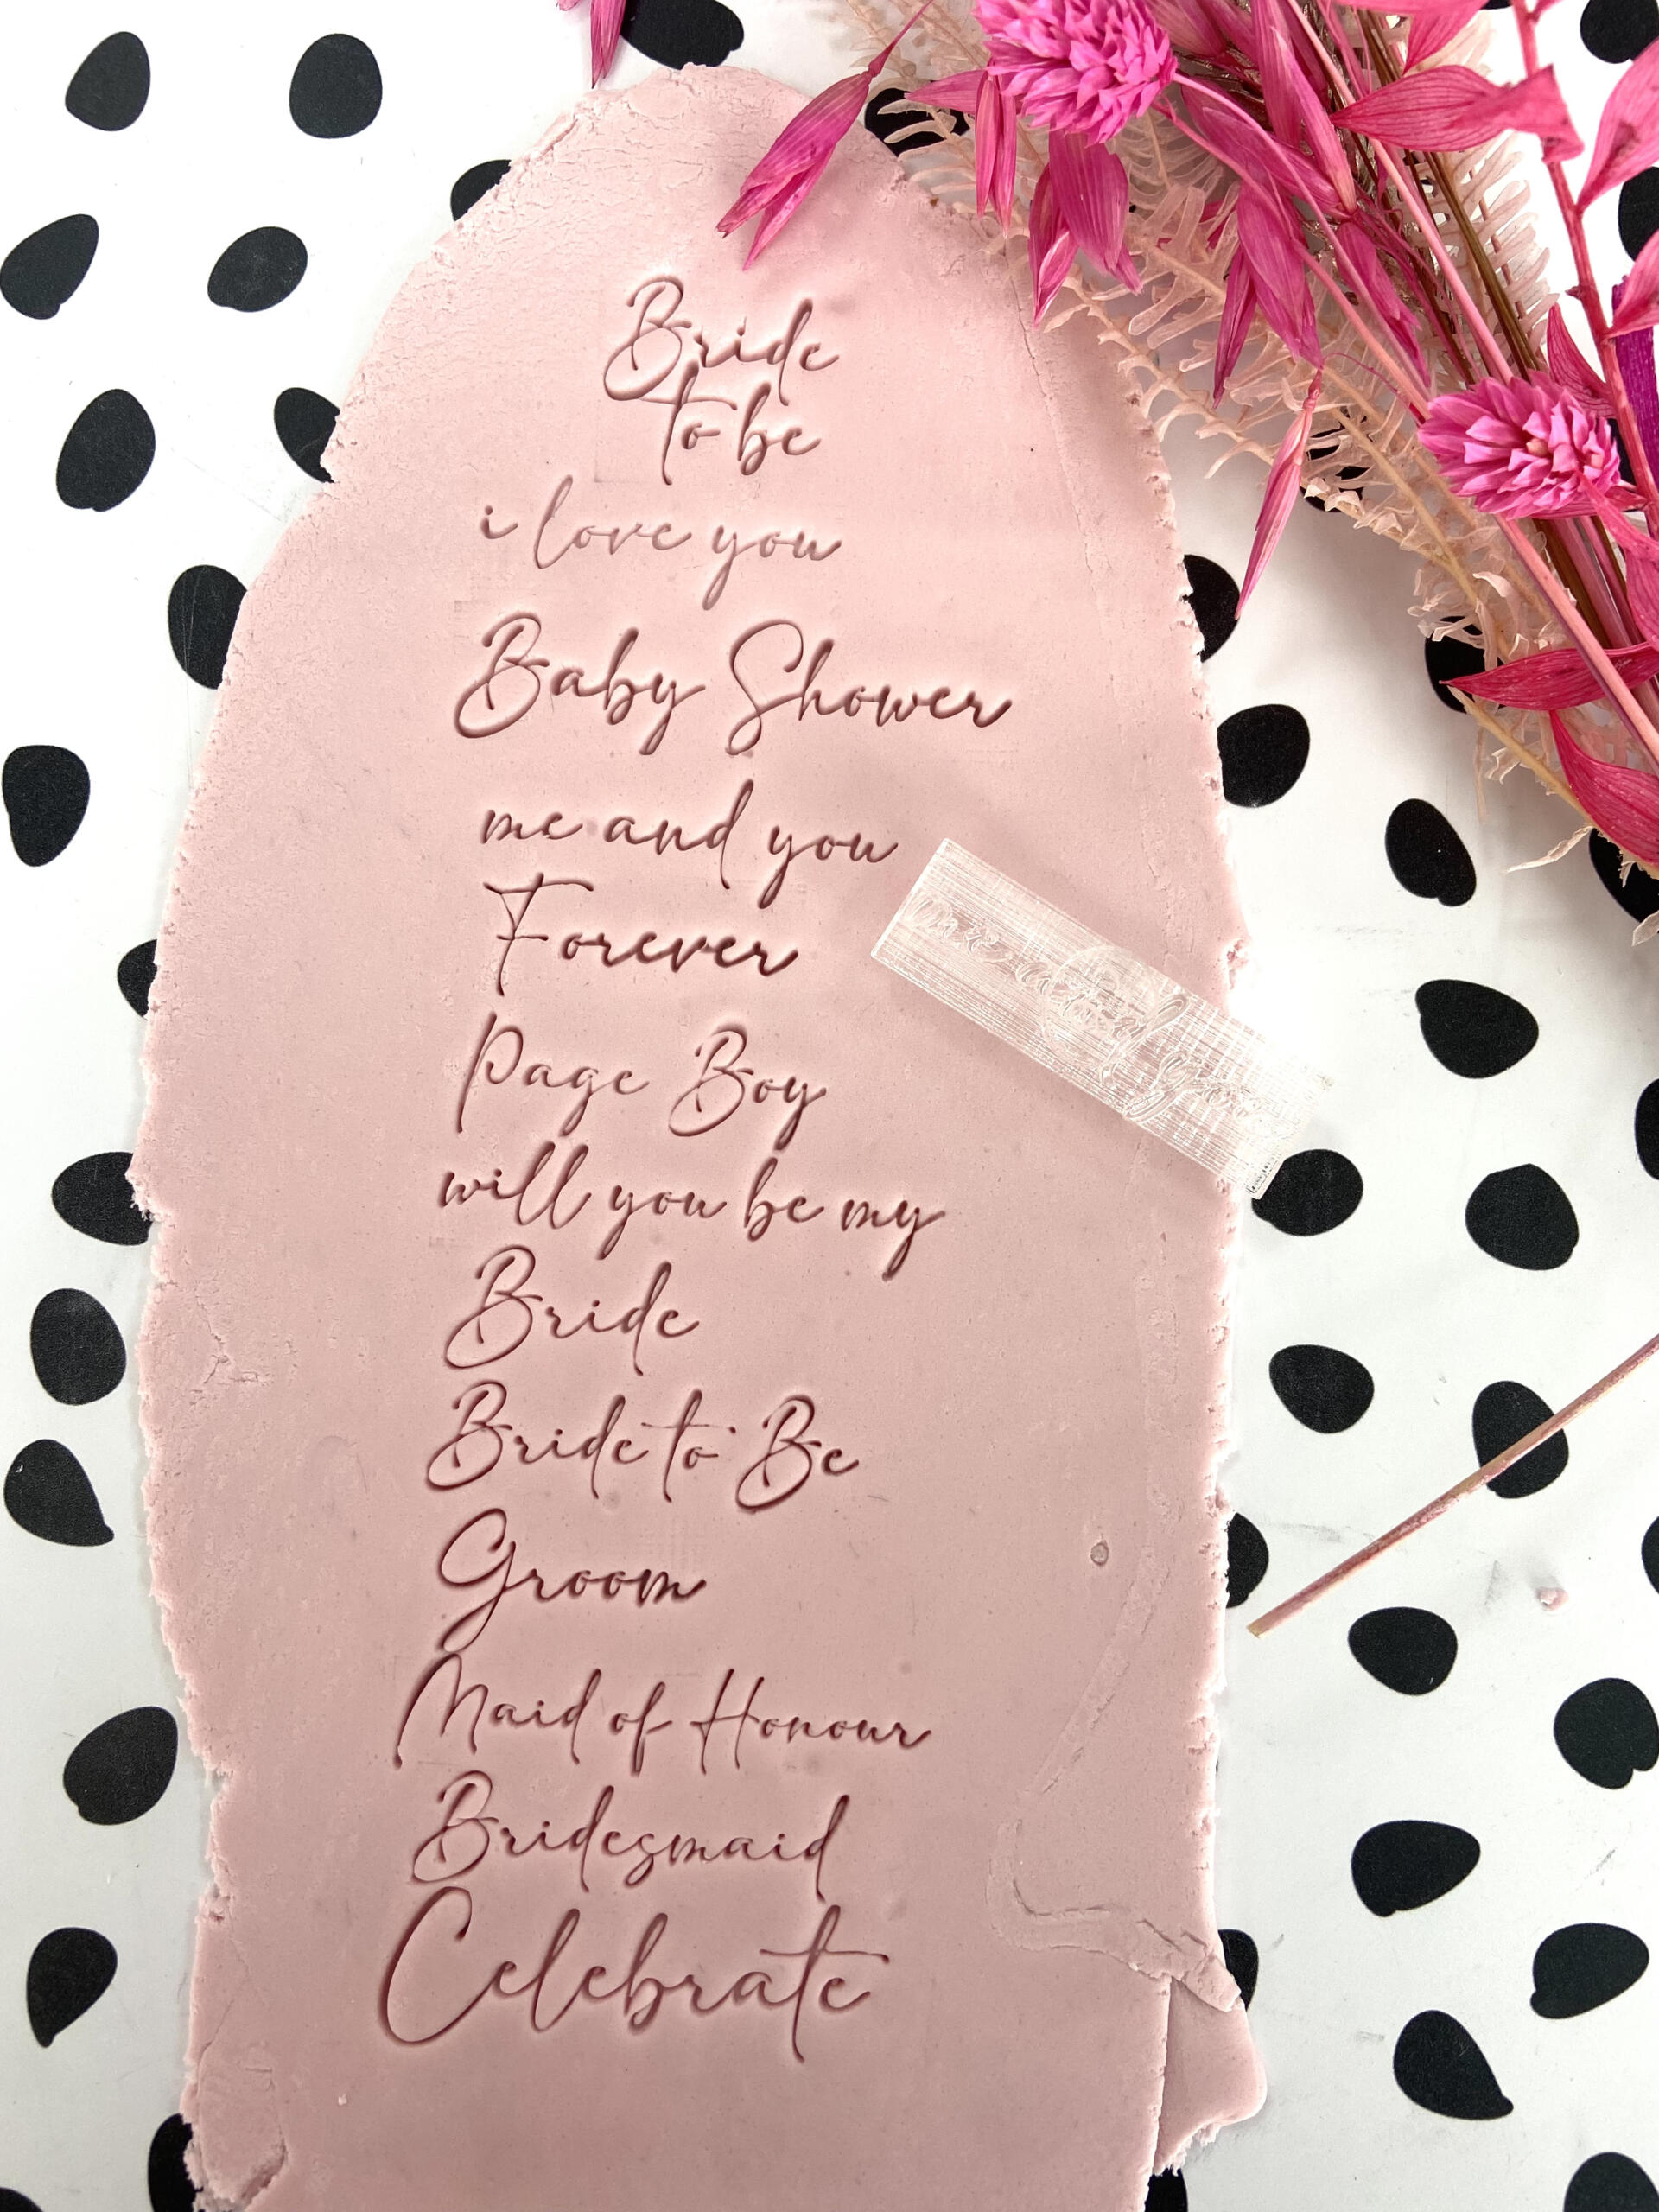 Bride
to be
i love you
Baby Shower
me and you
Forever
Page Boy
will you be my
Bride
Bride to Be
Groom
Maid of Honour
Bridesmaid
Celebrate
me and you